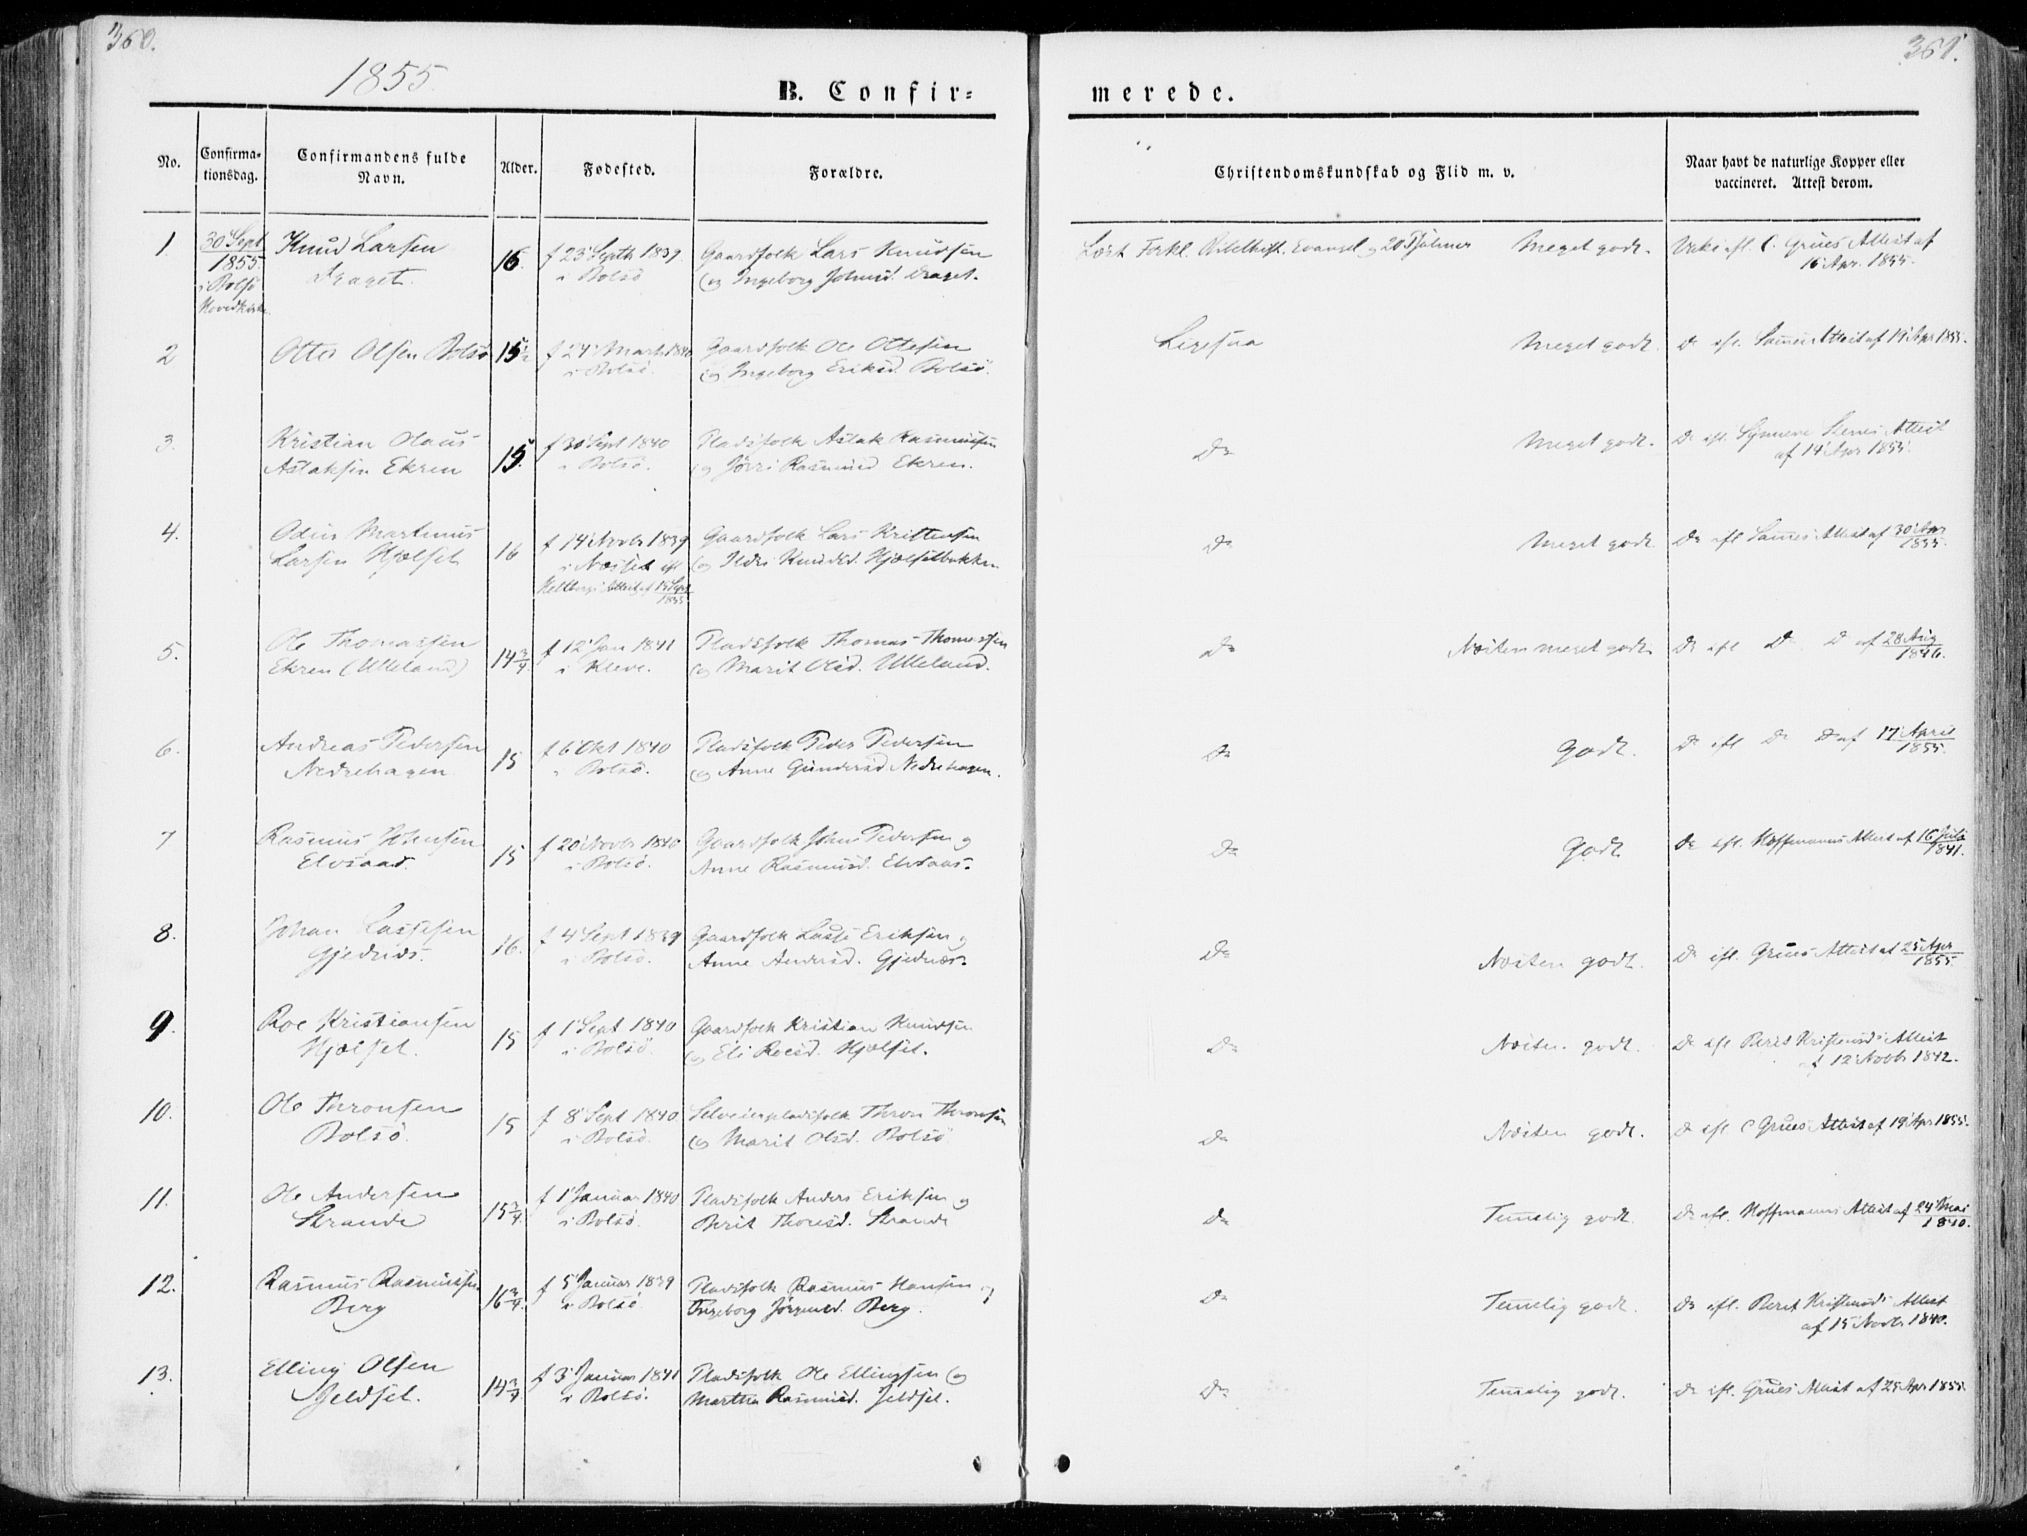 360.
361.
1855.
B. Confir=
merede.
No.
Confirma-
tionsdag.
Confirmandens fulde
Navn.
Alder.
Fødested.
Forældre.
Christendomskundskab og Flid m. v.
Naar havt de naturlige Kopper eller
vaccineret. Attest derom.
1
30 Sept
1855.
i Bolsø
Hovedkirke.
Knud Larsen
Draget.
16.
f 23 Septb 1839
i Bolsø
Gaardfolk Lars Knudsen
og Ingeborg Draget.
Læst Forkl. Bibelhist. Evangel og 20 Psalmer
Meget godt.
Vakc. efl. C. Grues Attest af
16 Apr. 1855.
2
Otte Olsen Bolsø
15½
f 24 Marts 1840
i Bolsø.
Gaardfolk Ole Ottesen
og Ingeborg Eriksd. Bolsø.
Ligesaa
Meget godt.
Do efl. Sammes Attest af 19 Apr 1855.
3.
Kristian Olaus
Aslaksen Ekren
15.
f 30 Sept 1840
i Bolsø.
Pladsfolk Aslak Rasmussen
og Rasmusd Ekren.
Do
Meget godt.
Do efl. Attest
af 14 Apr 1855.
4.
Martinus
Larsen Hjelset
16
f 14 Novbr 1839
i Nesset efl
Attest af 15 Sept
1855
Gaardfolk Lars Kristensen
og Ildri Knudsd. Hjelsetbakken
Do
Meget godt
Do efl Sammes Attest af 30 Apr
1855.
5.
Ole Thomassen
Ekren (Ulleland)
14¾.
f 12 Jan 1841
i Kleve.
Pladsfolk Thomas Thomassen
og Marit Olsd. Ulleland.
Do
Næsten meget godt
Do efl Do Do af 28 Aug
1846.
6.
Andreas Pedersen
Nedrehagen
15
f 6 Okt 1840
i Bolsø.
Pladsfolk Peder Pedersen
og Anne Gundersd Nedrehagen.
Do
Godt.
Do efl Do Do af 17 April
1855.
7
Rasmus Johnsen
Elvsaas.
15
f 20 Novbr 1840
i Bolsø.
Gaardfolk John Pedersen og
Anne Rasmusd. Elvsaas.
Do
Godt
Do efl. Hoffmanns Attest af 16 Juli
1841.
8.
Johan Lassesen
Gjednæs.
16.
f 4 Sept 1839
i Bolsø.
Gaardfolk Lasse Eriksen og
Anne Andersd. Gjednæs.
Do
Næsten godt.
Do efl. Grues Attest af 25 Apr
1855.
9.
Roe Kristiansen
Hjelset.
15
f 1 Sept 1840
i Bolsø.
Gaardfolk Kristian Knudsen
og Eli Roesd. Hjelset.
Do
Næsten godt.
Do efl Berit Kristensds Attest
af 12 Novb. 1842.
10.
Ole Thronsen
Bolsø.
15
f 8 Sept 1840
i Bolsø.
Selveierpladsfolk Thron Thronsen
og Marit Olsd. Bolsø
Do
Næsten godt.
Do efl C Grues Attest af 19 Apr 1855.
11.
Ole Andersen
Strande
15¾.
f 1 Januar 1840
i Bolsø.
Pladsfolk Anders Eriksen og
Berit Thoresd. Strande
Do
Temmelig godt.
Do efl. Hoffmanns Attest af 24 Mai
1840.
12.
Rasmus Rasmussen
Berg
16¾.
f 5 Januar 1839
i Bolsø.
Pladsfolk Rasmus Hansen og
Ingeborg Jørgensd. Berg.
Do
Temmelig godt.
Do efl. Berit Kristensds Attest
af 15 Novb. 1840.
13.
Elling Olsen
Jeldset.
14¾
f 3 Januar 1841
i Bolsø.
Pladsfolk Ole Ellingsen og
Martha Rasmusd. Jeldset.
Do
Temmelig godt.
Do efl. Grues Attest af 25 Apr 1855.